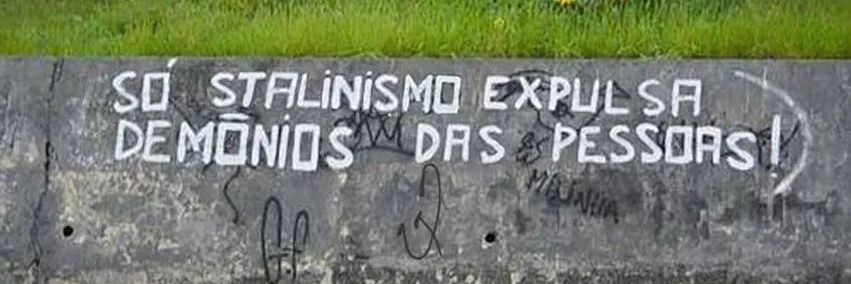 SÓ STALINISMO EXPULSA
DEMÔNIOS DAS PESSOAS!